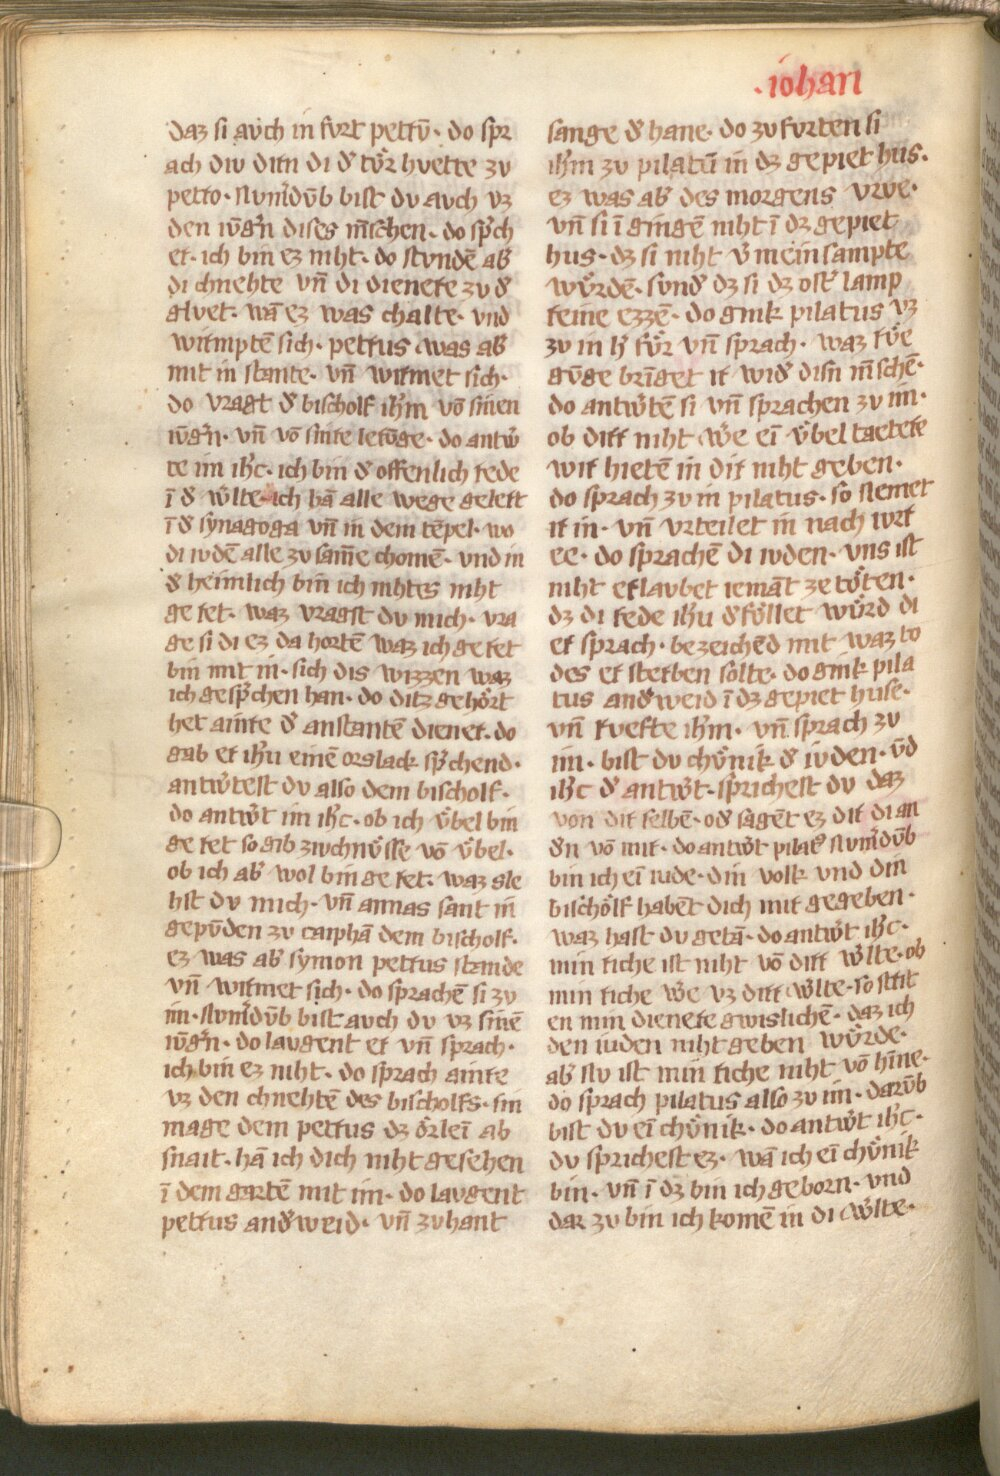 .iohan
daz si auch in furt petrū· do spr
ach div dirn di dˢ tuͤr huette zv
petro· Nvmˢdūb bist dv auch vz
den ivͤgˢn dises mˉschen· do spˢch
er· ich bin ez niht· do stvndē abˢ
di chnehte vn̄ di dienere zv dˢ
glvet· wā ez was chalte· vnd
wirmptē sich· petrus was abˢ
mit in stante· vn̄ wirmet sich·
do vragt dˢ bischolf ihˢm vō sinen
ivͤgˢn· vn̄ vō sinre lerūge· do antwˢ
te im ihˢc· ich bin dˢ offenlich rede
ī dˢ wˢlte· ich hā alle wege gelert
ī dˢ synagoga vn̄ in dem tēpel· wo
di ivdē alle zv sam̄e chomē· vnd in
dˢ heimlich bin ich nihtes niht
ge ret· waz vragst dv mich· vra
ge si di ez da hortē waz ich ge ret
bin mit in· sich dis wizzen waz
ich gespˢchen han· do ditz gehoͤrt
het ainre dˢ anstantē diener· do
gab er ihˢu einē orslack spˢchend·
antwˢtest dv also dem bischolf·
do antwˢt im ihˢc· ob ich vͤbel bin
ge ret so gib zivchnvͤsse vō vͤbel·
ob ich abˢ wol bin ge ret· waz sle
hst dv mich· vn̄ annas sant in
gepvͤden zv caiphā dem bischolf·
ez was abˢ symon petrus stande
vn̄ wirmet sich· do sprachē si zv
im· Nvmˢdūb bist auch dv vz sinē
ivͤgˢn· do lavgent er vn̄ sprach·
ich bin ez niht· do sprach ainre
vz den chnehtē des bischolfs· sin
mage dem petrus dz oͤrleī ab
snait· hā ich dich niht gesehen
ī dem gartē mit im· do lavgent
petrus andˢweid· vn̄ zvhant
sange dˢ hane· do zv furten si
ihˢm zv pilatū in dz gepiet hus·
ez was abˢ des morgens vrve·
vn̄ si ī gingē niht ī dz gepiet
hus· dz si niht vˢ mein sampte
wuͤrdē· svndˢ dz si dz ostˢ lamp
reine ezzē· do gink pilatus vz
zv in hˢ fuͤr vn̄ sprach· waz ruͤe
gvͤge bringet ir widˢ disn mˉschē·
do antwˢtē si vn̄ sprachen zv im·
ob dirr niht wˢe eī vͤbel taetere
wir hietē in dir niht geben·
do sprach zv in pilatus· so Nemet
ir in· vn̄ vrteilet in nach iwr
ee· do sprachē di ivden· vns ist
niht erlavbet iemāt ze toͤten·
dz di rede ihˢu dˢfoͤllet wuͤrd di
er sprach· bezeichēd mit waz to
des er sterben solte· do gink pila
tus andˢweid ī dz gepiet huse·
vn̄ rvefte ihˢm· vn̄ sprach zv
im· bist dv chuͤnik dˢ ivden· vn̄d
ihˢc dˢ antwˢt· sprichest dv daz
von dir selbē· odˢ sagēt ez dir di an
dˢn vō mir· do antwˢt pilatˢ Nvmˢdūb
bin ich eī iude· din volk vnd din
bischoͤlf habēt dich mir gegeben·
waz hast dv getā· do antwˢt ihˢc·
min riche ist niht vō dirr wˢlte· ob
min riche wˢe vz dirr wˢlte· so strit
en min dienere gwislichē· daz ich
den iuden niht geben wuͤrde·
abˢ Nv ist min riche niht vō hin̄e·
do sprach pilatus also zv im· darūb
bist dv eī chuͤnik· do antwˢt ihˢc·
dv sprichest ez· wā ich eī chuͤnik
bin· vn̄ ī dz bin ich geborn· vnd
dar zv bin ich komē in di wˢlte·